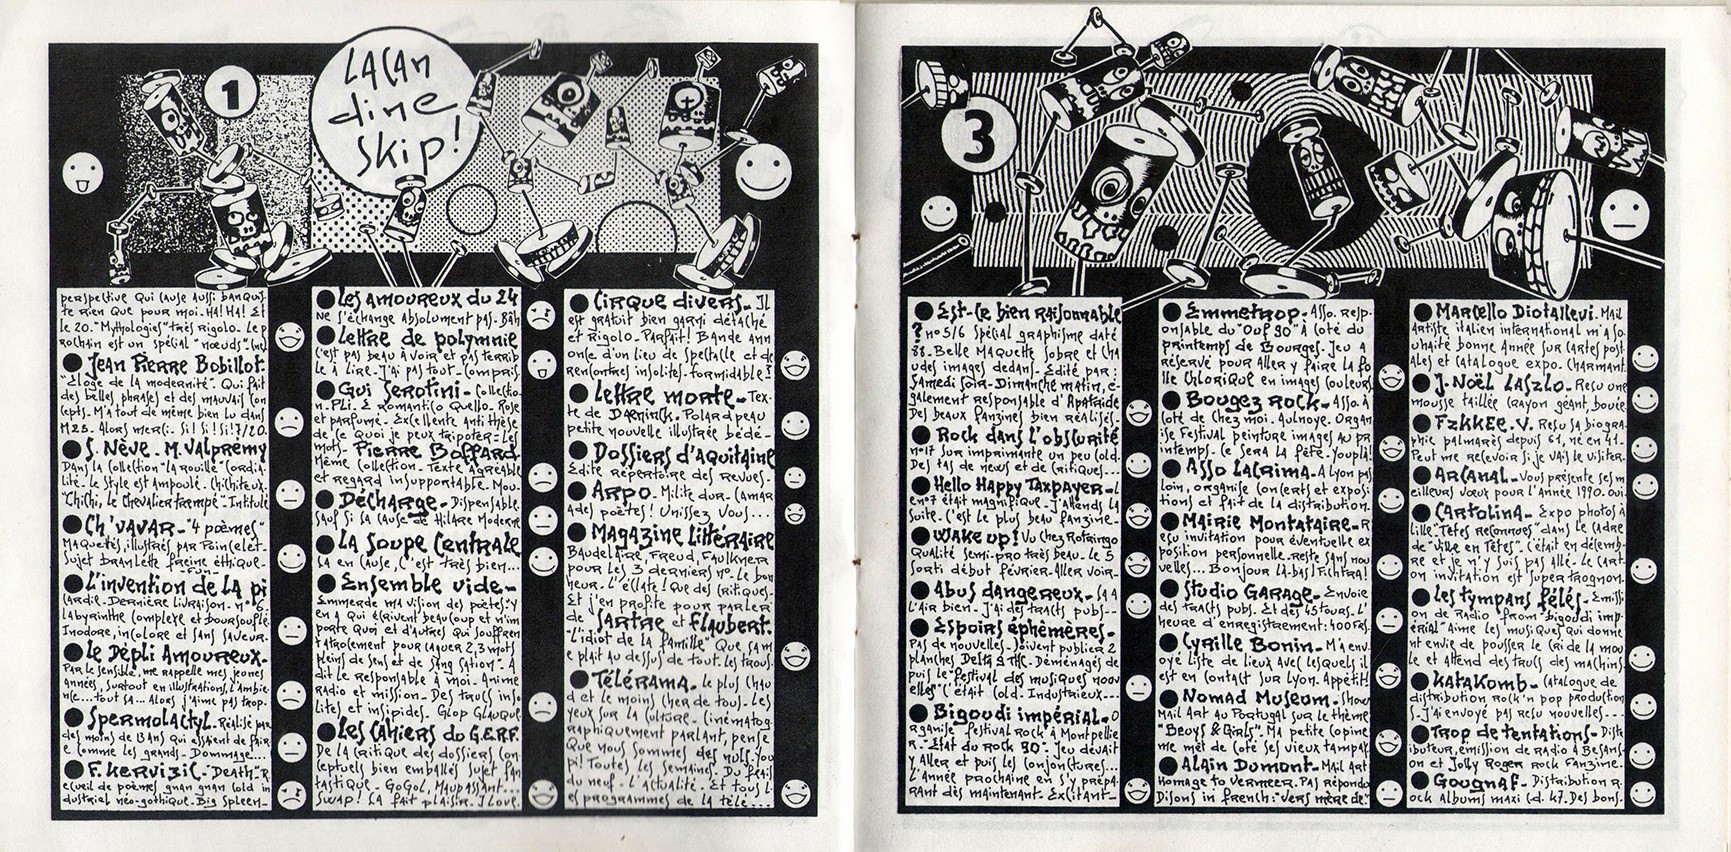 1
LACAN
dine
Skip!
perspective Qui cause aussi banquis-
te rien que pour moi. HA! HA! Et
le 20. "Mythologies" très Rigolo. Le p
rochain est un spécial "nœuds".
Jean Pierre Bobillot.
"Eloge de la modernité". Qui fait
des belles phrases et des mauvais con
cepts. M'a tout de même bien lu dans
M25. Alors merci. Si! Si! Si! 7/20.
S. Nève. M. Valprémy
Dans la collection "La rouille" cordia-
lité. Le style est ampoulé. Chichiteux.
"Chichi, le chevalier trempé". Intitulé
Ch'vavar. "4 poèmes"
Maquetés, illustrés par Poincelet.
Sujet branlette freine éthique.
- FUN -
L'invention de la pi
cardie. Dernière livraison. n°6.
Labyrinthe complexe et boursouflé.
Inodore, incolore et sans saveur.
Le Dépli Amoureux.
Par le sensible, me rappelle mes jeunes
années, surtout en illustrations, l'ambie
nce... tout ça... Alors j'aime pas trop.
Spermolactyl. Réalisé par
des moins de 13 ans qui essaient de fair
e comme les grands. Dommage...
F. Kervizic. "Death". R
ecueil de poèmes gnan gnan cold in
dustrial néo-gothique. Big Spleen.
Les amoureux du 24
Ne s'échange absolument pas. Bah
Lettre de polymnie
C'est pas beau à voir et pas terrib
le à lire. J'ai pas tout compris
Gui Serotini. Collectio
n. Pli. E romantico Quello. Rose
et parfumé. Excellente anti thèse
de ce Quoi je peux tripoter. Les
mots. Pierre Boffard
Même collection. Texte Agréable
et regard insupportable. Mou.
Décharge. Dispensable
sauf si sa cause de Hilare Moderne
La Soupe Centrale
sa en cause, c'est très bien...
Ensemble vide.
Emmerde ma vision des poètes. Y
en a Qui écrivent beaucoup et n'im
porte Quoi et d'autres Qui souffren
t atrocement pour caquer 2,3 mots
pleins de sens et de sang sation". A
dit le Responsable à moi. Anime
Radio et mission. Des trucs inso
lites et insipides. Glop Glauque
Les Cahiers du G.E.R.F.
De la critique des dossiers con
ceptuels bien emballés sujet fan
tastique. Gogol, Maupassant...
Swap! Ça fait plaisir. I love.
Cirque divers. Il
est gratuit bien garni détaché
et Rigolo. Parfait! Bande ann
once d'un lieu de spectacle et de
rencontres insolites. formidable!
Lettre morte. Tex-
te de Daeninck. Polard peau
petite nouvelle illustrée bédé.
Dossiers d'Aquitaine
Edite répertoire des revues.
Arpo. Milite dur. Camar
ades poètes! Unissez Vous...
Magazine littéraire
Baudelaire, Freud, Faulkner
pour les 3 derniers n°. Le bon
heur. L'éclate! Que des critiques.
Et j'en profite pour parler
de Sartre et Flaubert.
"L'idiot de la famille" Que sam
e plait au dessus de tout. Les trous.
Télérama. Le plus chau
d et le moins cher de tous. Les
yeux sur la culture. Cinématog
raphiquement parlant, pense
Que nous sommes des nuls. You
pi! Toutes les semaines. Du frais
du neuf. L'Actualité. Et tous l
es programmes de la télé...
3
Est-ce bien raisonnable
? n°5/6 Spécial graphisme daté
88. Belle Maquette Sobre et cha
udes images dedans. Edité par:
Samedi soir. Dimanche matin, é-
galement responsable d'Apatride
Des beaux fanzines bien réalisés.
Rock dans l'obscurité
n°17 sur imprimante un peu cold.
Des tas de news et de critiques...
Hello Happy Taxpayer. L
e n°7 était magnifique. J'attends la
suite. C'est le plus beau fanzine.
Wake up! Vu chez Rotringo
Qualité semi-pro très beau. Le 5
sorti début février. Aller voir.
Abus dangereux. Sa a
l'air bien. J'ai des tracts pubs...
Espoirs éphémères.
Pas de nouvelles. Doivent publier 2
planches Delta 9 THC. Déménagés de
puis le "festival des musiques nouv
elles" c'était cold. Industrieux...
Bigoudi impérial. O
rganise festival rock à Montpellie
r. "Etat du rock 90". Jeu devait
y Aller et puis les conjonctures...
L'Année prochaine en s'y prépa-
rant dès maintenant. Excitant.
Emmetrop. Asso. Resp-
onsable du "Ouf 90" à côté du
printemps de Bourges. Jeu a
réservé pour Aller y faire la fo
lle chlorique en images couleurs
Bougez rock. Asso. A
côté de chez moi. Aulnoye. Organ
ise Festival peinture images au pr
intemps. Ce sera la fête. Youpla!
Asso Lacrima. A Lyon pas
loin, organise concerts et exposi
tions et fait de la distribution.
Mairie Montataire. R
esu invitation pour éventuelle ex
position personnelle. Reste sans nou
velles... Bonjour là-bas! Fichtra!
Studio Garage. Envoie
des tracts pubs. Et des 45 tours. L'
heure d'enregistrement: 400 Frs.
Cyrille Bonin. M'a env
oyé liste de lieux avec lesquels il
est en contact sur Lyon. Appétit!
Nomad Museum. Show
Mail Art au Portugal sur le thème
"Beuys & Girls". Ma petite copine
me met de coté ses vieux tampax
Alain Dumont. Mail Art
Homage to Vermeer. Pas répondu
Disons in french: "Vers mère de"
Marcello Diotallevi. Mail
Artiste italien international m'a so
uhaité bonne Année sur cartes post
ales et catalogue expo. Charmant.
J. Noël Laszlo. Resu une
mousse taillée crayon géant, bouée
Fzkkee. V. Resu sa biogra-
phie palmarès depuis 61, né en 41.
Peut me recevoir si je vais le visiter.
Arcanal. Vous présente ses m
eilleurs vœux pour l'Année 1990. Oui.
Cartolina. Expo photos à
Lille "Têtes Reconnues" dans le cadre
de "Ville en Têtes". C'était en décemb-
re et je n'y suis pas allé. Le cart
on invitation est super trognon.
Les tympans fêlés. Emissi
on de Radio "from "bigoudi imp
érial" Aime les musiques qui donne
nt envie de pousser le cri de la mou
le et attend des trucs des machins.
Katakomb. Catalogue de
distribution rock'n pop production
s. J'ai envoyé pas resu nouvelles...
Trop de tentations. Distr
ibuteur, émission de radio à Besans-
on et Jolly Roger rock Fanzine.
Gougnaf. Distribution r
ock Albums maxi cd. k7. Des bons.